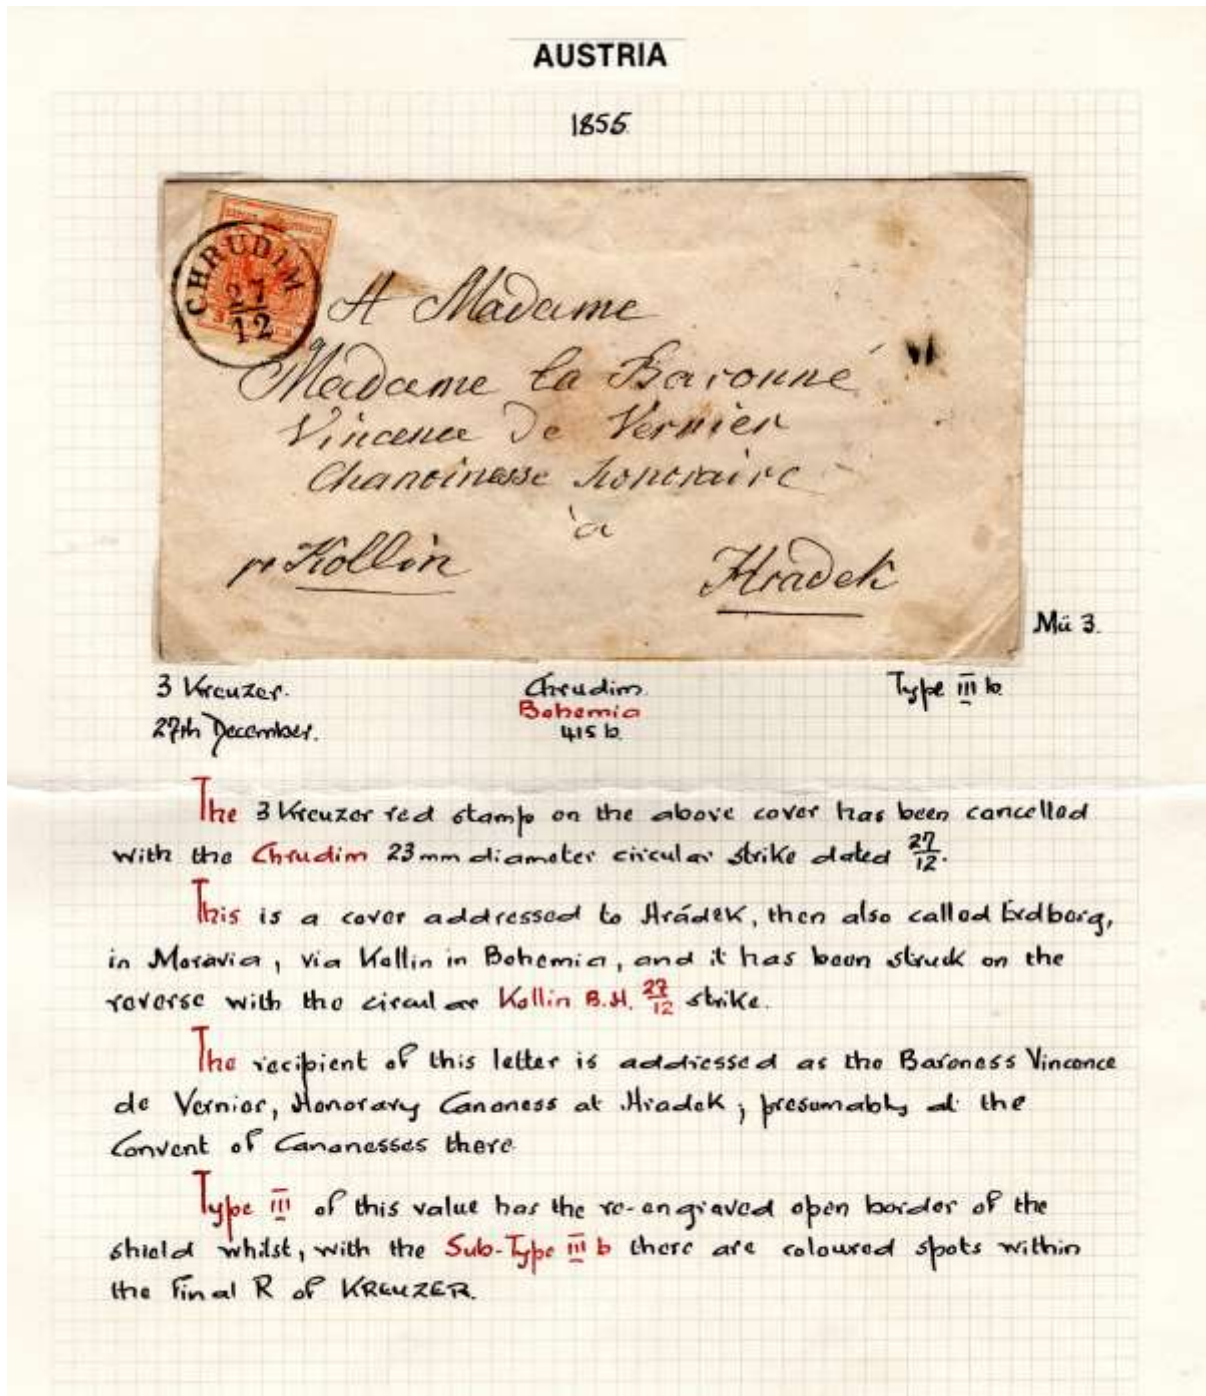 AUSTRIA
1855
CHRUDIM
27
12
A Madame
Madame la Baronné
Vincence De Vernier
Chanoinesse honoraire
à
pr Kollin
Hradek
Mü 3.
3 Kreuzer. Chrudim. Type III b
Bohemia
27th December. 415 b.
The 3 Kreuzer red stamp on the above cover has been cancelled
with the Chrudim 23mm diameter circular strike dated 27/12.
This is a cover addressed to Hrádek, then also called Erdberg,
in Moravia, via Kollin in Bohemia, and it has been struck on the
reverse with the circular Kollin B.H. 27/12 strike.
The recipient of this letter is addressed as the Baroness Vincence
de Vernier, Honorary Canoness at Hradek; presumably at the
Convent of Canonesses there
Type III of this value has the re-engraved open border of the
shield whilst, with the Sub-Type III b there are coloured spots within
the final R of KREUZER.